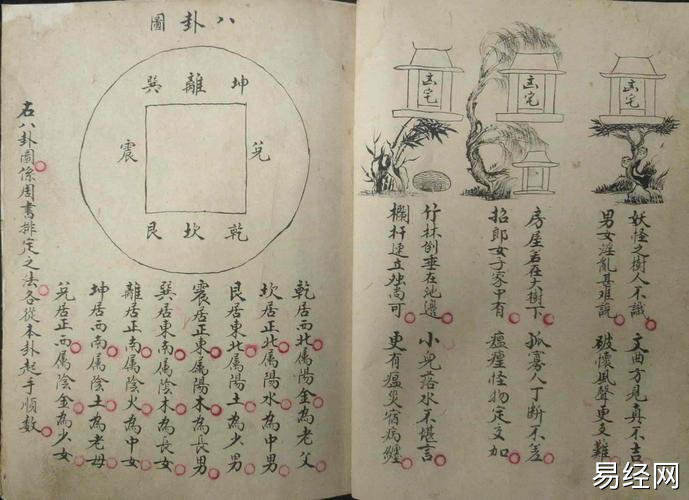 凶宅
凶宅
凶宅
妖怪之樹人不識 文曲方見真不吉
男女淫亂甚难説 破懷風聲更文難
房屋若在大樹下 孤寡人丁断不差
招郎女子家中有 瘟 怪物定交加
竹林倒垂在池邊 小兒落水不堪言
欄杆速立独高可 更有瘟災宿病纏
八卦圖
坤離巽
兌震
乾坎艮
乾居西北属陽金為老父
坎居正北属陽水為中男
艮居東北属陽土為少男
震居正東属陽木為長男
巽居東南属陰木為長女
離居正南属陰火為中女
坤居西南属陰土為老母
兌居正西属陰金為少女
右八卦圖係周書排定之法各從本卦起手順数
易经网